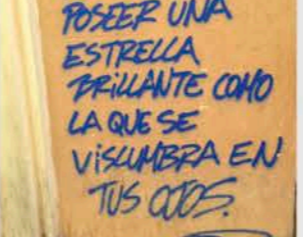 POSEER UNA
ESTRELLA
BRILLANTE COMO
LA QUE SE
VISLUMBRA EN
TUS OJOS.